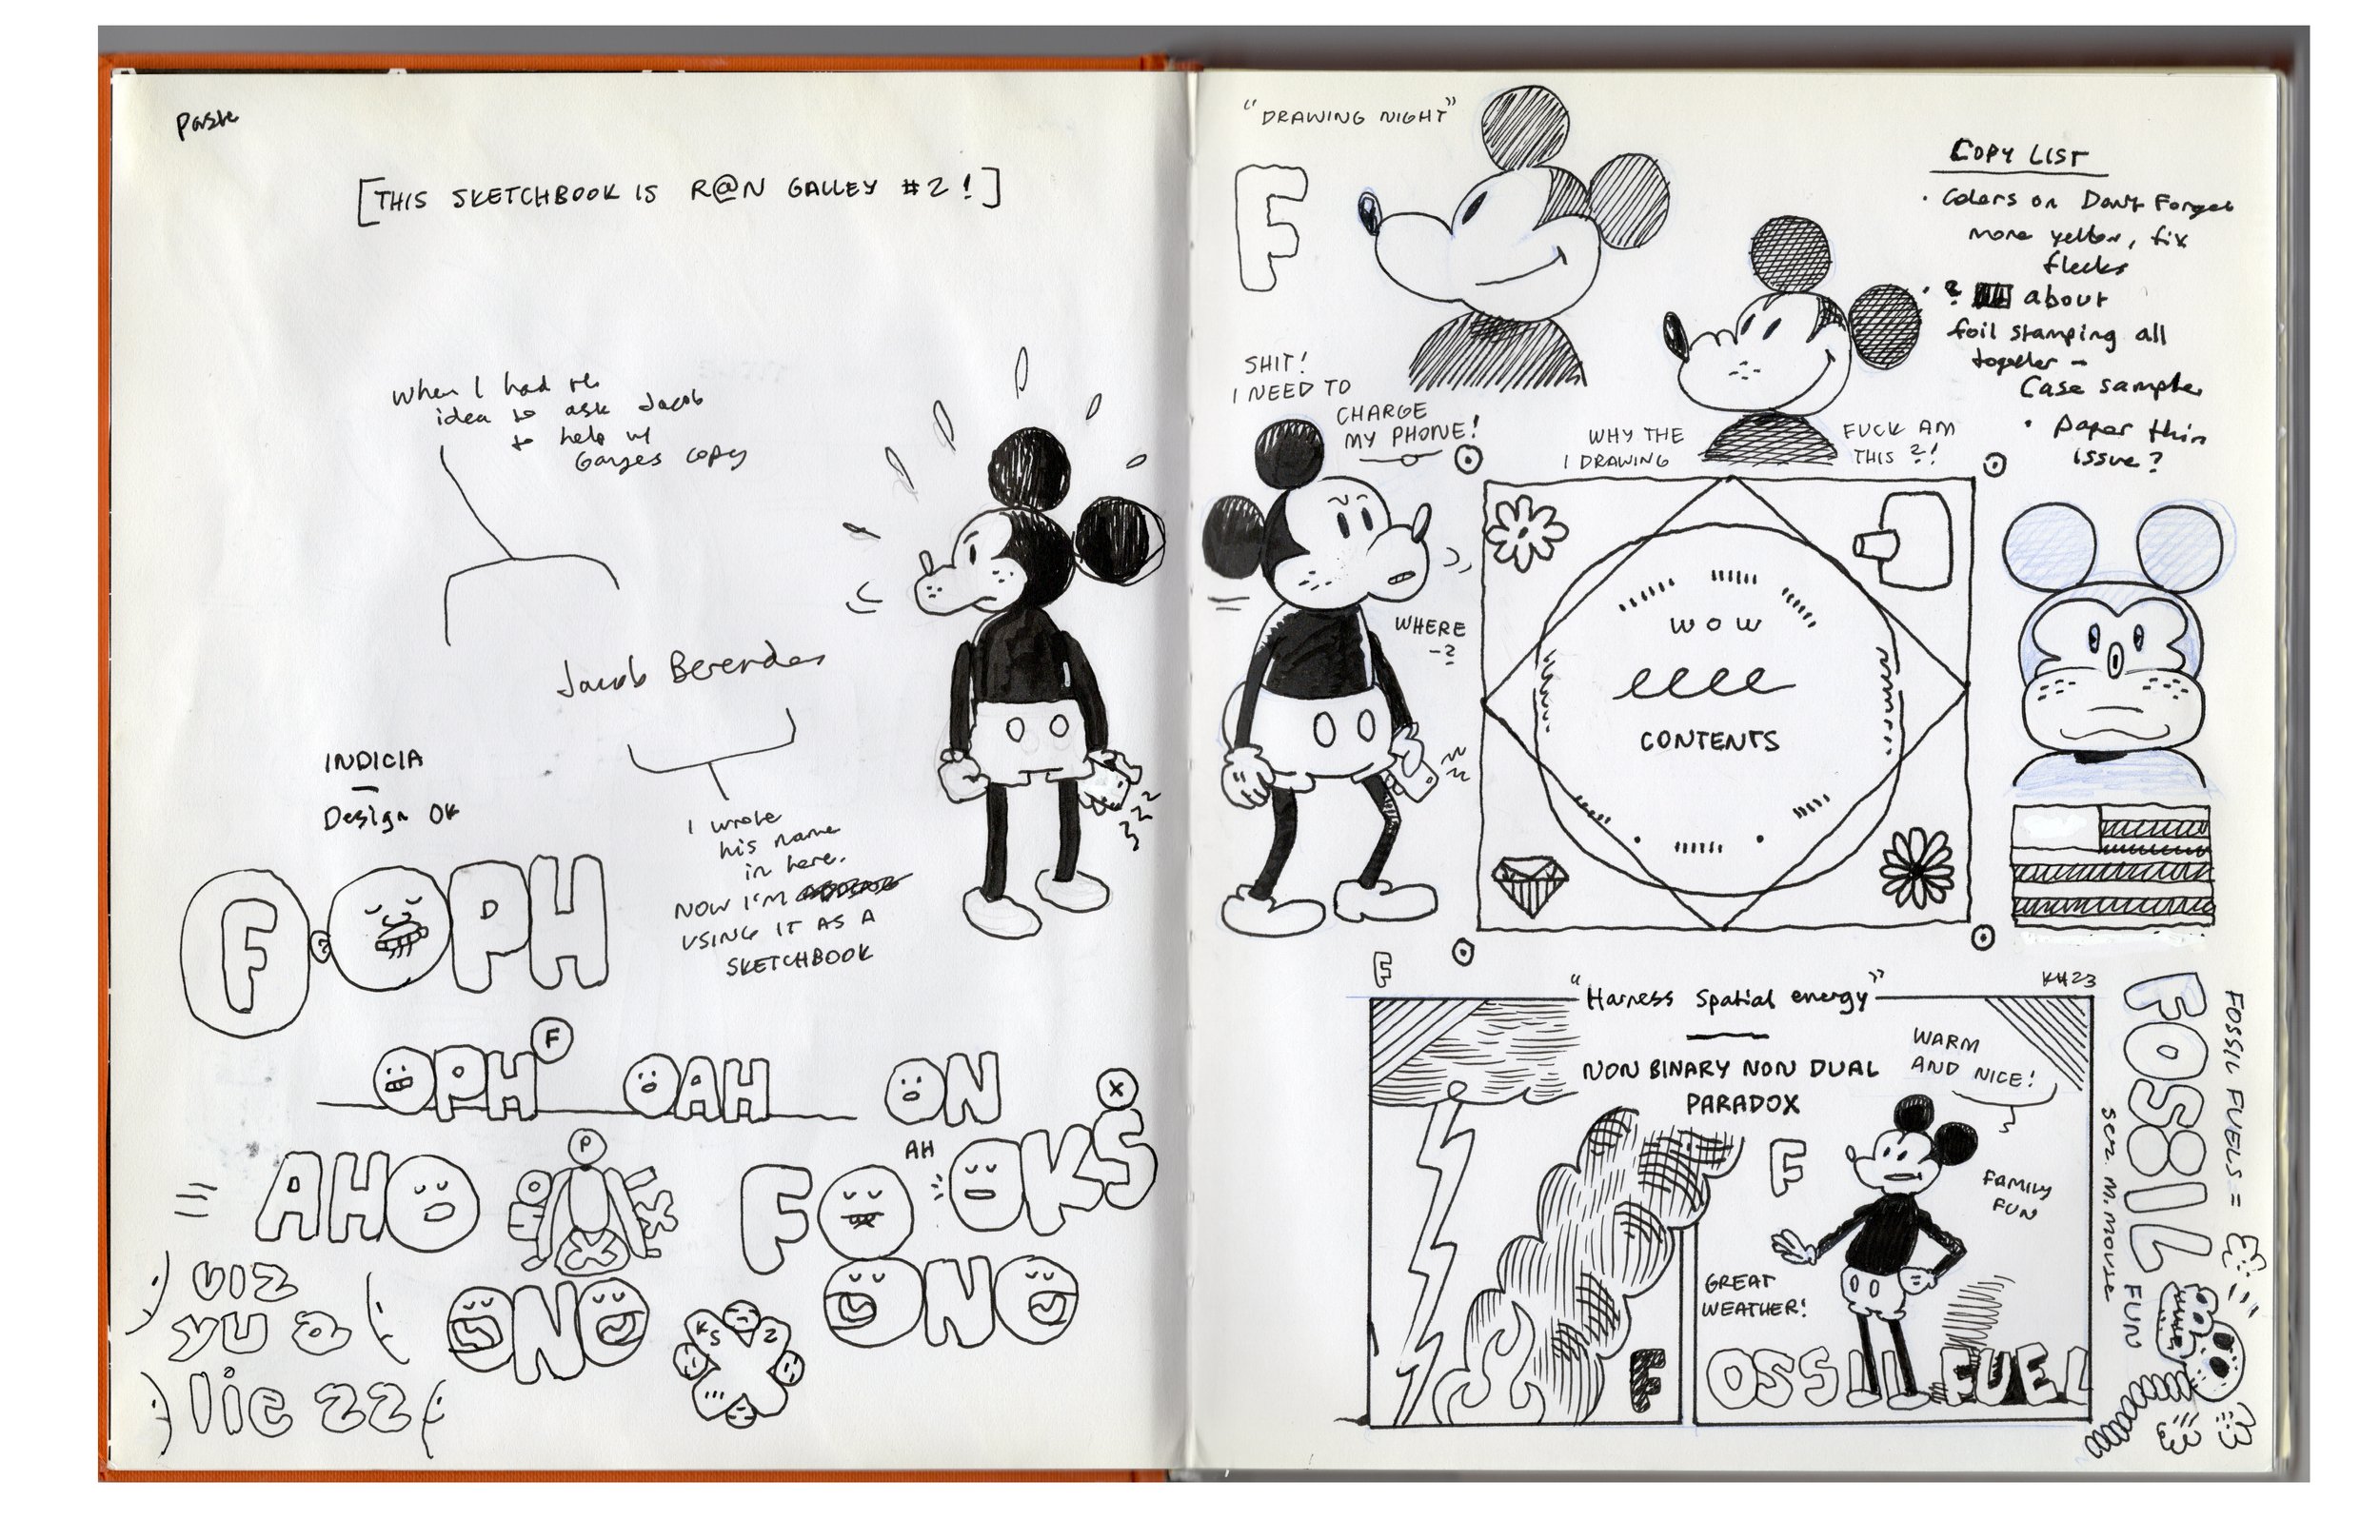 Paste
[THIS SKETCHBOOK IS R@N GALLEY #2!]
When I had the
idea to ask Jacob
to help w/
copy
Jacob Berendes
I wrote
his name
in here.
NOW I'M
USING IT AS A
SKETCHBOOK
INDICIA
Design OK
F
OPH
OPH F
OAH
ON
AHO
P
AH
FO
OKS
X
VIZ
YU 2
ONO
ONO
KS
Z
lic 22
"DRAWING NIGHT"
F
SHIT!
I NEED TO
CHARGE
MY PHONE!
WHY THE
FUCK AM
I DRAWING
THIS ?!
COPY LIST
• Colors on Don't Forget
more yellow, fix
flecks
• ? about
foil stamping all
together -
Case samples
• paper thin
issue?
WHERE
-?
WOW
CONTENTS
F
"Harness spatial energy"
KH23
NON BINARY NON DUAL
PARADOX
WARM
AND NICE!
F
FAMILY
FUN
GREAT
WEATHER!
F
OSSIL FUEL
FOSSIL
FUN
sen. M. Mouse
FOSSIL FUELS =